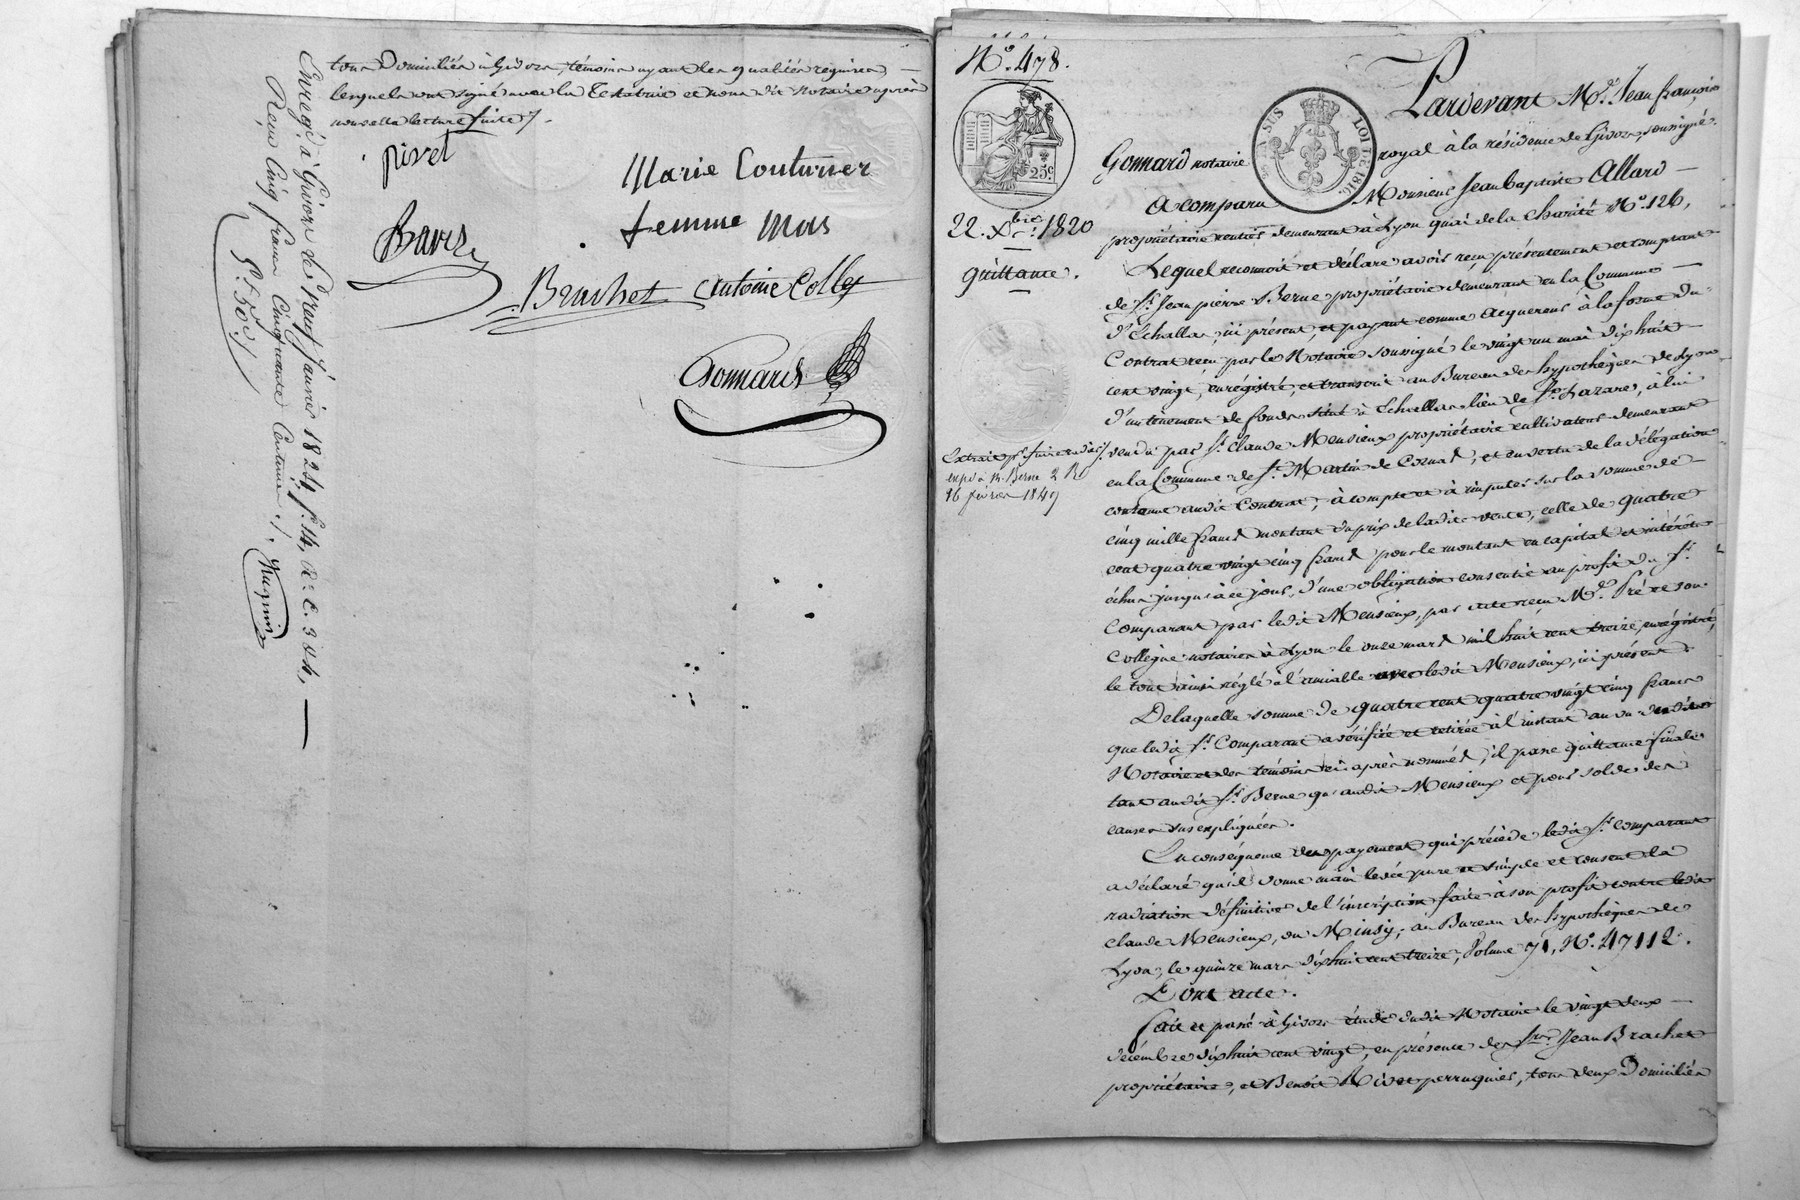 tous Domiciliés à Givors, témoins ayant les qualités requises,
lesquels ont signé avec la Testatrice et nous dit Notaire après
nouvelle lecture faite.
pivet
Marie Couturier
femme mas
Bavez
Brachet Antoine Collet
Gonnard
Enregé à Givors le neuf janvier 1824 fo. 14, Ro. C. 3 et 4,
Reçu Cinq francs Cinquante Centimes.
5f. 50c.
No. 478.
25c.
22. Xbre. 1820
Quittance.
LOI DE 1816.
Pardevant Me. Jean françois
Gonnard notaire royal à la résidence de Givors, soussigné.
A comparu Monsieur Jean baptiste Allard
propriétaire rentier demeurant à Lyon quai de la Charité No. 126,
Lequel reconnoit et déclare avoir reçu présentement et comptant
de Sr. Jean pierre Berne propriétaire demeurant en la Commune
d'Echallas, ici présent, et payant comme acquereur à la forme du
Contrat reçu par le Notaire soussigné le vingt un mai dix huit
cent vingt, enregistré, et transcrit au Bureau des hypothèques de Lyon
d'un tènement de fonds situé à Echallas lieu de St. Lazare, à lui
vendu par Sr. Claude Mensieux propriétaire cultivateur demeurant
en la Commune de St. Martin de Cornas, et en vertu de la délégation
contenue audit Contrat, à compte et à imputer sur la somme de
cinq mille francs montant du prix de ladite vente, celle de quatre
cent quatre vingt cinq francs pour le montant en capital et intérêts
échus jusqu'à ce jour, d'une obligation consentie au profit du Sr.
Comparant par ledit Mensieux, par acte reçu Me. Frère son
Collègue notaire à Lyon le onze mars mil huit cent treize, enregistré,
le tout ainsi réglé à l'amiable avec ledit Mensieux, ici présent.
De laquelle somme de quatre cent quatre vingt cinq francs
que ledit Sr. Comparant a vérifiée et retirée à l'instant au vu desdits
Notaire et des témoins ci après nommés, il passe quittance finale
tant audit Sr. Berne qu'audit Mensieux et pour solde des
causes sus expliquées.
En conséquence du payement qui précède ledit Sr. comparant
a déclaré qu'il donne main levée pure et simple et consent la
radiation définitive de l'inscription faite à son profit contre ledit
Claude Mensieux, ou Minsy, au Bureau des hypothèques de
Lyon, le quinze mars dix huit cent treize, Volume 71, No. 47112.
Dont acte.
fait et passé à Givors étude dudit Notaire le vingt deux
décembre dix huit cent vingt, en présence des Srs. Jean Brachet
propriétaire, et Benoit Rivet perruquier, tous deux Domiciliés
expé à M. Berne 2 Ro
16 février 1849